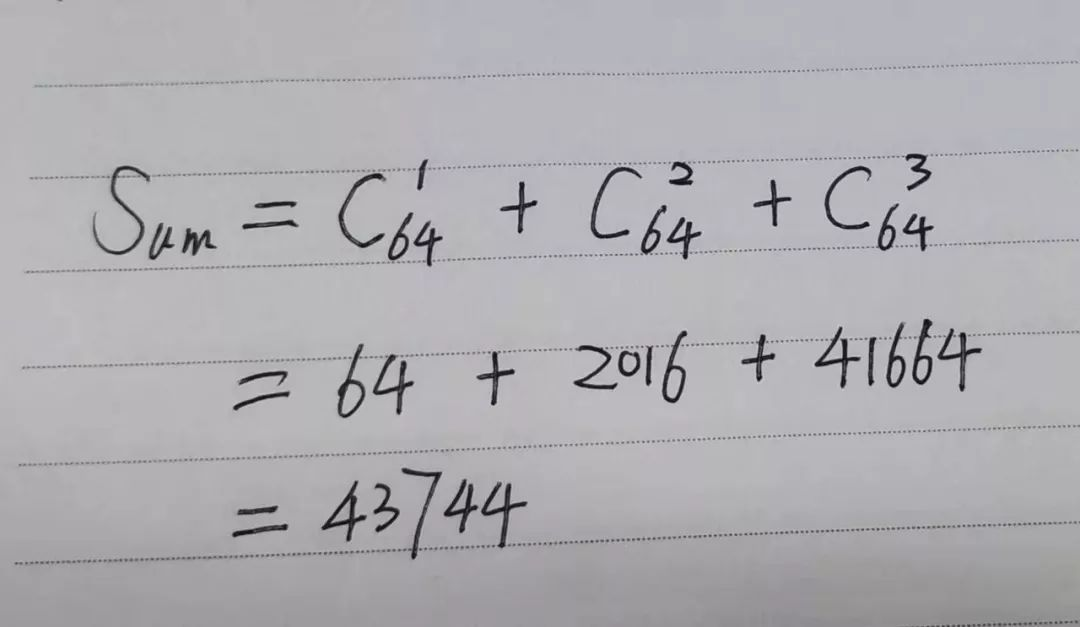 Sum = C¹₆₄ + C²₆₄ + C³₆₄
= 64 + 2016 + 41664
= 43744